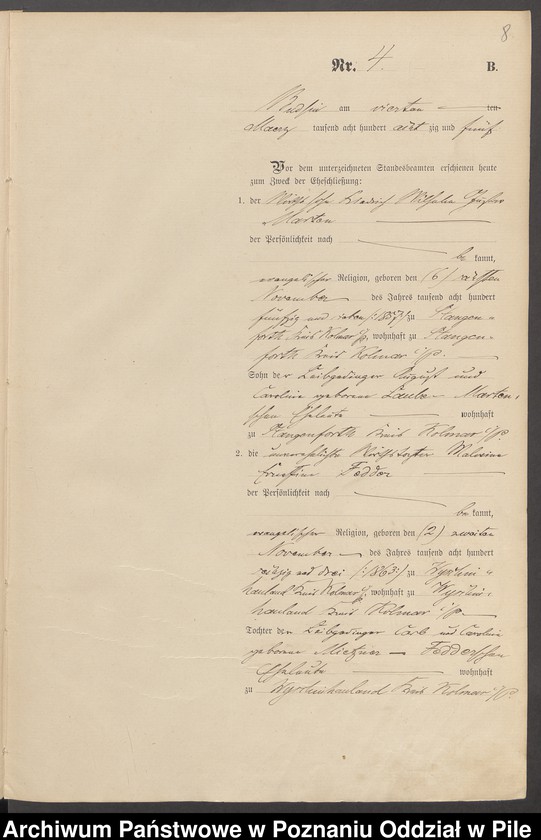 8
Nr. 4. B.
Budsin am vierten ten
Maerz tausend acht hundert acht zig und fünf
Vor dem unterzeichneten Standesbeamten erschienen heute
zum Zweck der Eheschließung:
1. der Wirthssohn Friedrich Wilhelm
Marten
der Persönlichkeit nach
be kannt,
evangelischer Religion, geboren den
November des Jahres tausend acht hundert
fünfzig und sieben /:1857:/ zu Stangen-
forth Kreis Kolmar i/P., wohnhaft zu Stangen-
forth Kreis Kolmar i/P.
Sohn der Leibgedinger August und
Caroline geborene Marten-
schen Eheleute wohnhaft
zu Stangenforth Kreis Kolmar i/P.
2. die unverehelichte Wirthstochter
Ernestine Fedder
der Persönlichkeit nach
be kannt,
evangelischer Religion, geboren den (2) zweiten
November des Jahres tausend acht hundert
sechzig und drei /:1863:/ zu
hauland Kreis Kolmar i/P., wohnhaft zu
hauland Kreis Kolmar i/P.
Tochter der Leibgedinger Carl und Caroline
geborene Mietzner - Fedderschen
Eheleute wohnhaft
zu Kreis Kolmar i/P.
Archiwum Państwowe w Poznaniu Oddział w Pile